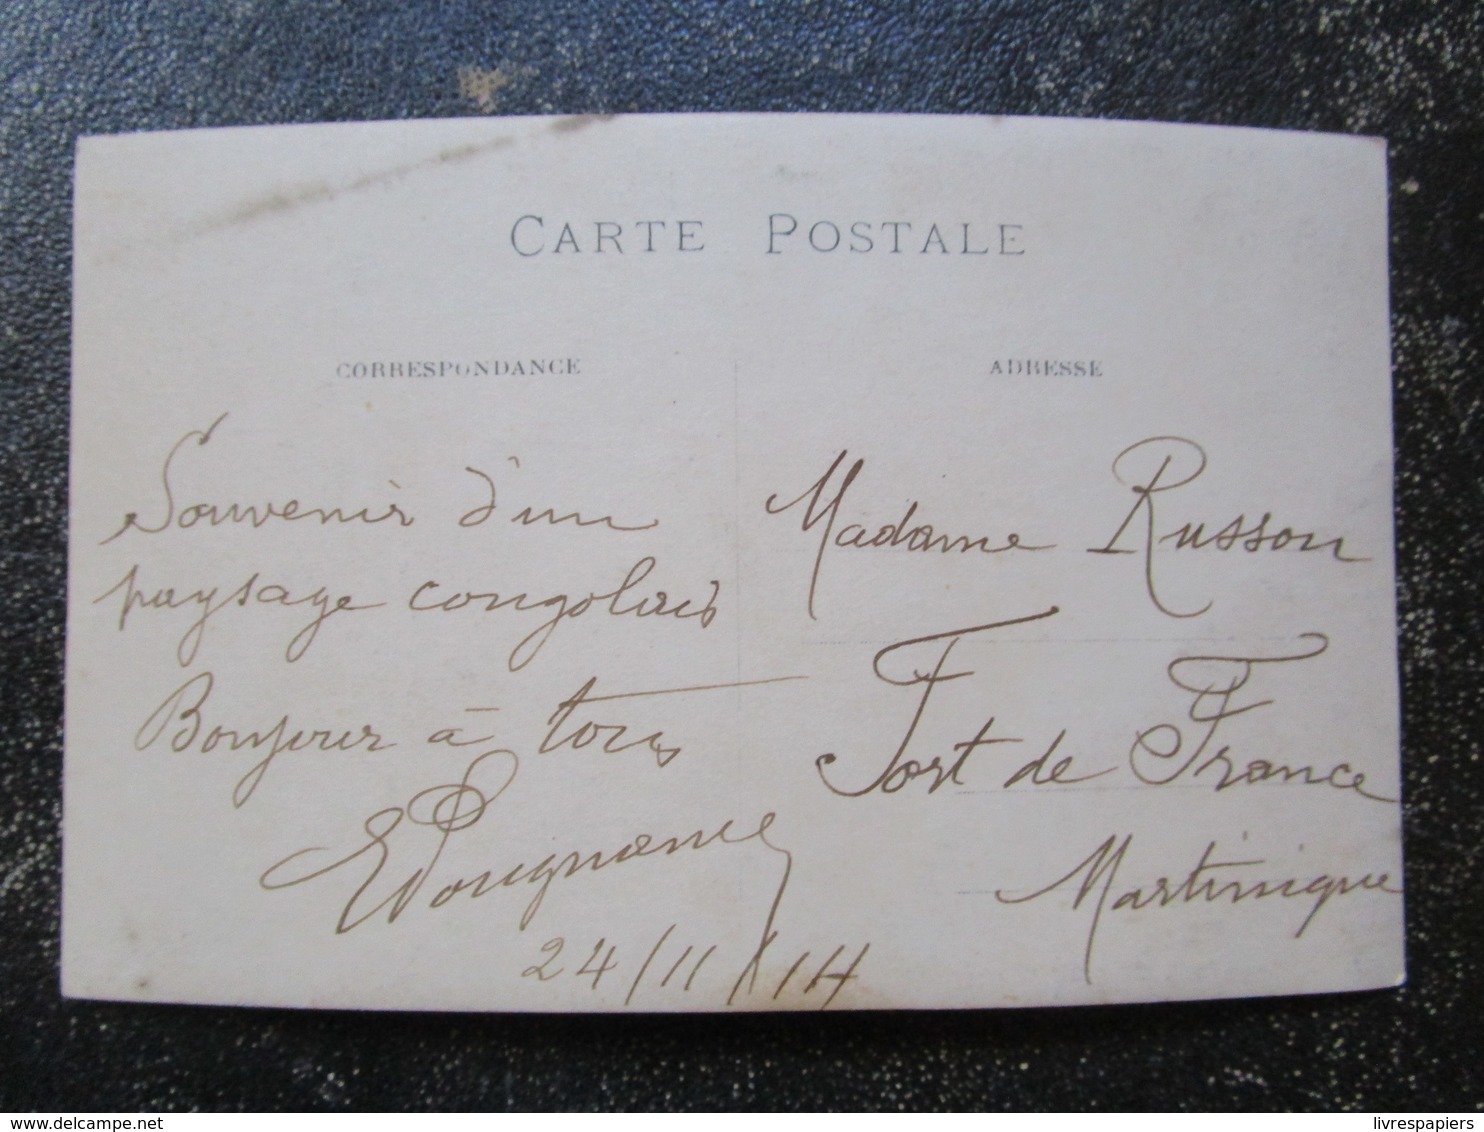 CARTE POSTALE
CORRESPONDANCE
Souvenir d'un
paysage congolais
Bonjour à tous
24/11/14
ADRESSE
Madame Russon
Fort de France
Martinique
livrespapiers